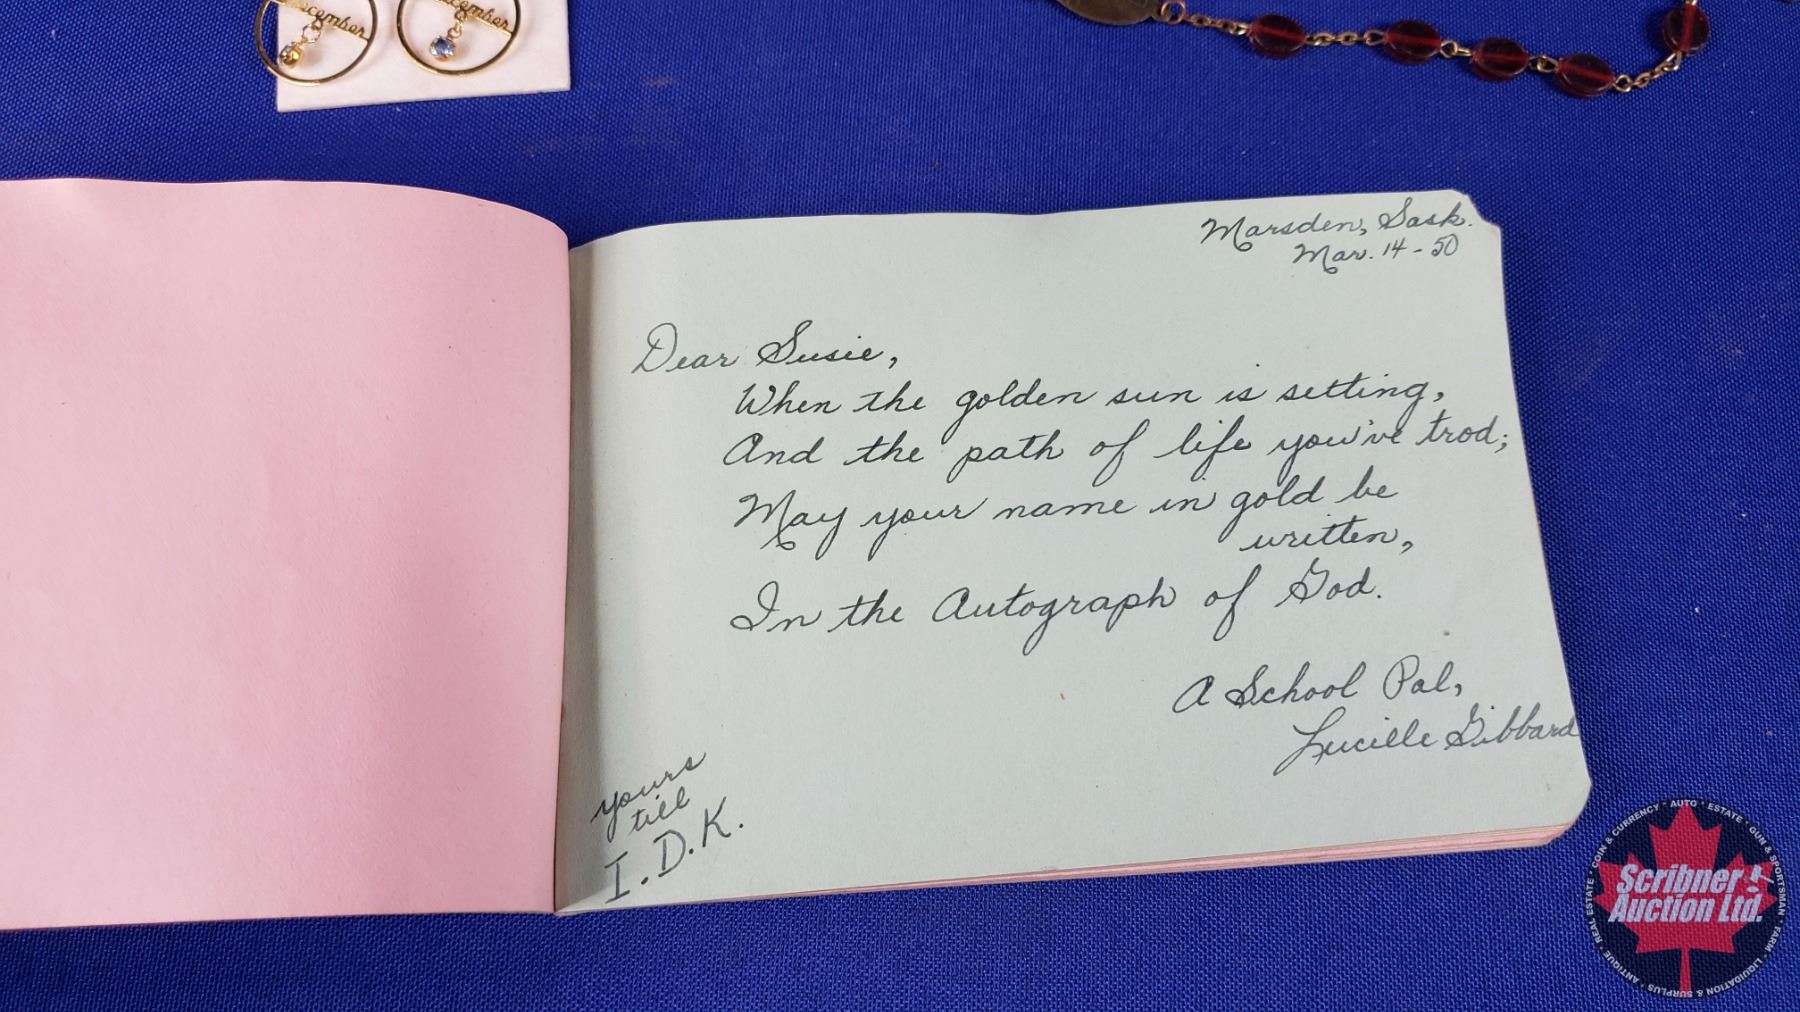 December
December
Marsden, Sask.
Mar. 14 - 50
Dear Susie,
When the golden sun is setting,
And the path of life you've trod;
May your name in gold be
written,
In the Autograph of God.
A School Pal,
Lucille Gibbard
yours
till
I.D.K.
Scribner
Auction Ltd.
REAL ESTATE • COIN & CURRENCY • AUTO • ESTATE • GUN & SPORTSMAN • FARM • LIQUIDATION & SURPLUS • ANTIQUE